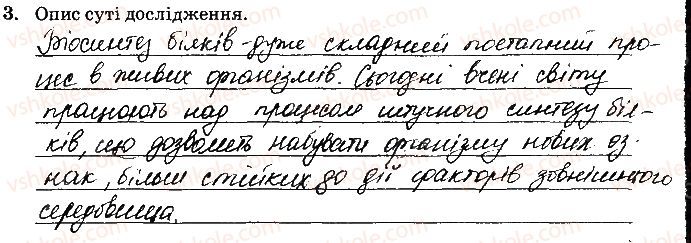 3. Опис суті дослідження.
Біосинтез білків - дуже складний поетапний про-
цес в живих організмів. Сьогодні вчені світу
працюють над процесом штучного синтезу біл-
ків, що дозволить набувати організму нових оз-
нак, більш стійких до дії факторів зовнішнього
середовища.